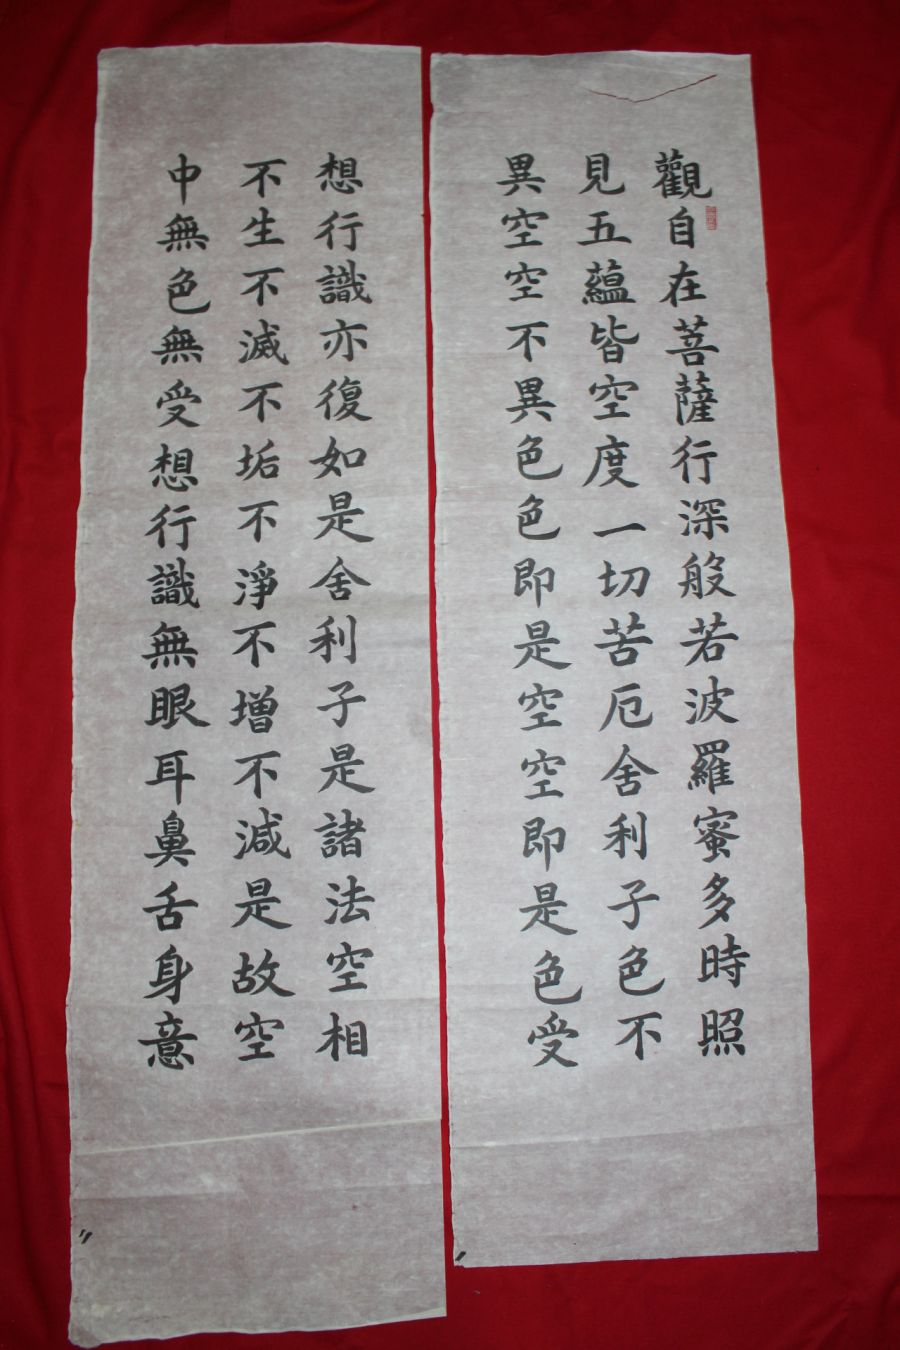 觀自在菩薩行深般若波羅蜜多時照
見五蘊皆空度一切苦厄舍利子色不
異空空不異色色即是空空即是色受
想行識亦復如是舍利子是諸法空相
不生不滅不垢不淨不增不減是故空
中無色無受想行識無眼耳鼻舌身意